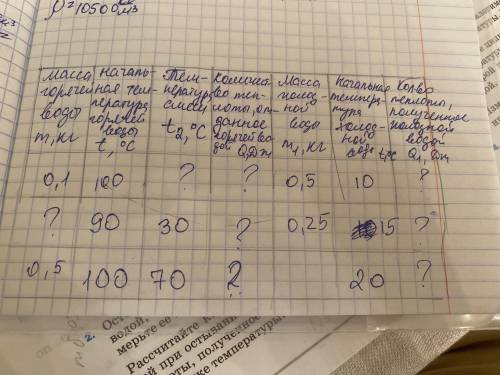 ρ = 10500 кг/м3
Масса горячей воды m, кг
Началь- ная тем- пература горячей воды t, °C
Тем- ература смеси t2, °C
во теп- лоты, от- данное горячей во- дой Q, Дж
Масса холод- ной воды m1, кг
Начальная темпера- тура холод- ной воды t, °C
Кол-во теплоты, полученное холодной водой Q1, Дж
0,1 100 ? ? 0,5 10 ?
? 90 30 ? 0,25 15 ?
0,5 100 70 ? 20 ?
2. Ост
водой,
мерьте ее
Рассчитайте к
ой при остыван
оты, получено
же температуры.